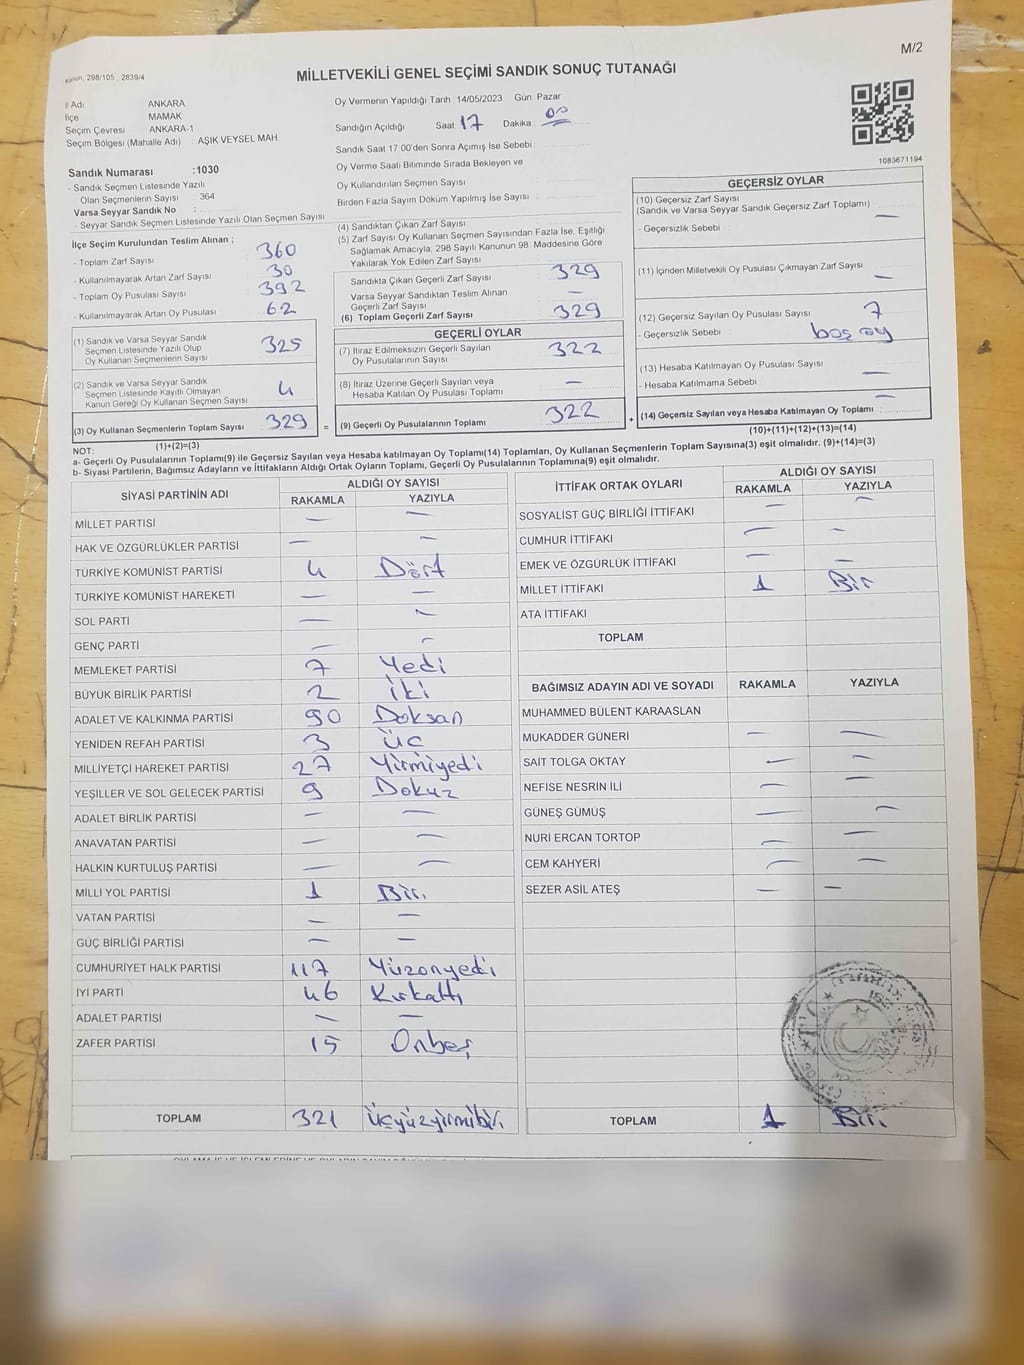 M/2
Kanun: 298/105 : 2839/4
MİLLETVEKİLİ GENEL SEÇİMİ SANDIK SONUÇ TUTANAĞI
İl Adı ANKARA
İlçe MAMAK
Seçim Çevresi ANKARA-1
Seçim Bölgesi (Mahalle Adı) : AŞIK VEYSEL MAH
Sandık Numarası :1030
- Sandık Seçmen Listesinde Yazılı
Olan Seçmenlerin Sayısı : 364
Varsa Seyyar Sandık No :
- Seyyar Sandık Seçmen Listesinde Yazılı Olan Seçmen Sayısı
Oy Vermenin Yapıldığı Tarih :14/05/2023 Gün: Pazar
Sandığın Açıldığı Saat 17 Dakika : 00
Sandık Saat 17:00'den Sonra Açımış İse Sebebi:
Oy Verme Saati Bitiminde Sırada Bekleyen ve
Oy Kullandırılan Seçmen Sayısı
Birden Fazla Sayım Döküm Yapılmış İse Sayısı
1083671194
İlçe Seçim Kurulundan Teslim Alınan ;
- Toplam Zarf Sayısı 360
- Kullanılmayarak Artan Zarf Sayısı 30
- Toplam Oy Pusulası Sayısı 392
- Kullanılmayarak Artan Oy Pusulası 62
(1) Sandık ve Varsa Seyyar Sandık
Seçmen Listesinde Yazılı Olup
Oy Kullanan Seçmenlerin Sayısı 325
(2) Sandık ve Varsa Seyyar Sandık
Seçmen Listesinde Kayıtlı Olmayan
Kanun Gereği Oy Kullanan Seçmen Sayısı 4
(3) Oy Kullanan Seçmenlerin Toplam Sayısı 329 =
(1)+(2)=(3)
(4) Sandıktan Çıkan Zarf Sayısı
(5) Zarf Sayısı Oy Kullanan Seçmen Sayısından Fazla İse, Eşitliği
Sağlamak Amacıyla; 298 Sayılı Kanunun 98. Maddesine Göre
Yakılarak Yok Edilen Zarf Sayısı
Sandıkta Çıkan Geçerli Zarf Sayısı 329
Varsa Seyyar Sandıktan Teslim Alınan
Geçerli Zarf Sayısı —
(6) Toplam Geçerli Zarf Sayısı 329
GEÇERLİ OYLAR
(7) İtiraz Edilmeksizin Geçerli Sayılan
Oy Pusulalarının Sayısı 322
(8) İtiraz Üzerine Geçerli Sayılan veya
Hesaba Katılan Oy Pusulası Toplamı —
(9) Geçerli Oy Pusulalarının Toplamı 322 +
GEÇERSİZ OYLAR
(10) Geçersiz Zarf Sayısı
(Sandık ve Varsa Seyyar Sandık Geçersiz Zarf Toplamı) —
- Geçersizlik Sebebi :
(11) İçinden Milletvekili Oy Pusulası Çıkmayan Zarf Sayısı —
(12) Geçersiz Sayılan Oy Pusulası Sayısı 7
- Geçersizlik Sebebi : boş oy
(13) Hesaba Katılmayan Oy Pusulası Sayısı —
- Hesaba Katılmama Sebebi :
(14) Geçersiz Sayılan veya Hesaba Katılmayan Oy Toplamı —
(10)+(11)+(12)+(13)=(14)
NOT:
a- Geçerli Oy Pusulalarının Toplamı(9) ile Geçersiz Sayılan veya Hesaba katılmayan Oy Toplamı(14) Toplamları, Oy Kullanan Seçmenlerin Toplam Sayısına(3) eşit olmalıdır. (9)+(14)=(3)
b- Siyasi Partilerin, Bağımsız Adayların ve İttifakların Aldığı Ortak Oyların Toplamı, Geçerli Oy Pusulalarının Toplamına(9) eşit olmalıdır.
SİYASİ PARTİNİN ADI ALDIĞI OY SAYISI
RAKAMLA YAZIYLA
MİLLET PARTİSİ — —
HAK VE ÖZGÜRLÜKLER PARTİSİ — —
TÜRKİYE KOMÜNİST PARTİSİ 4 Dört
TÜRKİYE KOMÜNİST HAREKETİ — —
SOL PARTİ — —
GENÇ PARTİ — —
MEMLEKET PARTİSİ 7 Yedi
BÜYÜK BİRLİK PARTİSİ 2 İki
ADALET VE KALKINMA PARTİSİ 90 Doksan
YENİDEN REFAH PARTİSİ 3 Üç
MİLLİYETÇİ HAREKET PARTİSİ 27 Yirmiyedi
YEŞİLLER VE SOL GELECEK PARTİSİ 9 Dokuz
ADALET BİRLİK PARTİSİ — —
ANAVATAN PARTİSİ — —
HALKIN KURTULUŞ PARTİSİ — —
MİLLİ YOL PARTİSİ 1 Bir.
VATAN PARTİSİ — —
GÜÇ BİRLİĞİ PARTİSİ — —
CUMHURİYET HALK PARTİSİ 117 Yüzonyedi
İYİ PARTİ 46 Kırkaltı
ADALET PARTİSİ — —
ZAFER PARTİSİ 15 Onbeş
TOPLAM 321 Üçyüzyirmibir.
İTTİFAK ORTAK OYLARI ALDIĞI OY SAYISI
RAKAMLA YAZIYLA
SOSYALİST GÜÇ BİRLİĞİ İTTİFAKI — —
CUMHUR İTTİFAKI — —
EMEK VE ÖZGÜRLÜK İTTİFAKI — —
MİLLET İTTİFAKI 1 Bir
ATA İTTİFAKI
TOPLAM
BAĞIMSIZ ADAYIN ADI VE SOYADI RAKAMLA YAZIYLA
MUHAMMED BÜLENT KARAASLAN
MUKADDER GÜNERİ — —
SAİT TOLGA OKTAY — —
NEFİSE NESRİN İLİ — —
GÜNEŞ GÜMÜŞ — —
NURİ ERCAN TORTOP — —
CEM KAHYERİ — —
SEZER ASİL ATEŞ — —
TOPLAM 1 Bir.